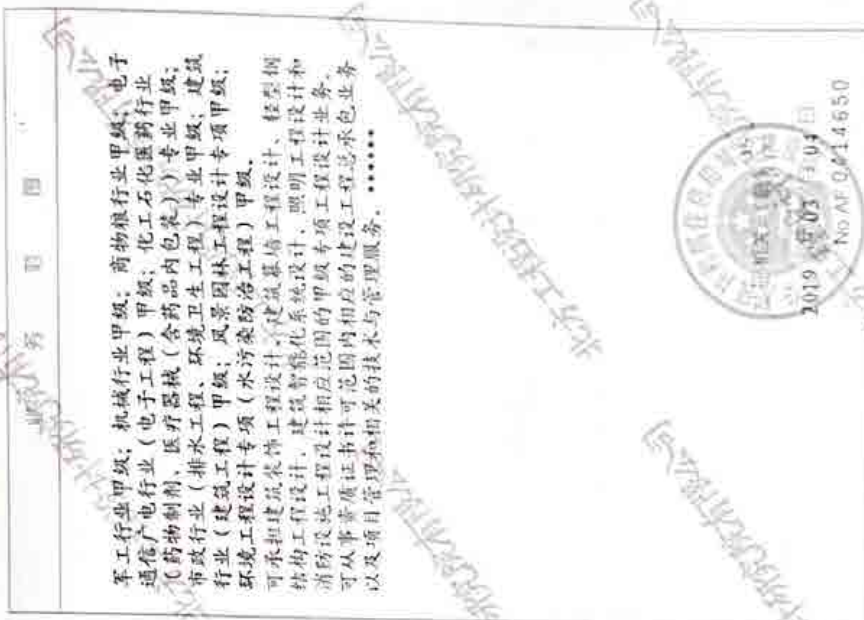 业务范围
军工行业甲级；机械行业甲级；商物粮行业甲级；电子
通信广电行业（电子工程）甲级；化工石化医药行业
（药物制剂、医疗器械（含药品内包装））专业甲级；
市政行业（排水工程、环境卫生工程）专业甲级；建筑
行业（建筑工程）甲级；风景园林工程设计专项甲级；
环境工程设计专项（水污染防治工程）甲级。
可承担建筑装饰工程设计、建筑幕墙工程设计、轻型钢
结构工程设计、建筑智能化系统设计、照明工程设计和
消防设施工程设计相应范围的甲级专项工程设计业务。
可从事资质证书许可范围内相应的建设工程总承包业务
以及项目管理和相关的技术与管理服务。******
发证机关：（章）
2019年03月04日
No.AF 0414650
北方工程设计研究院有限公司